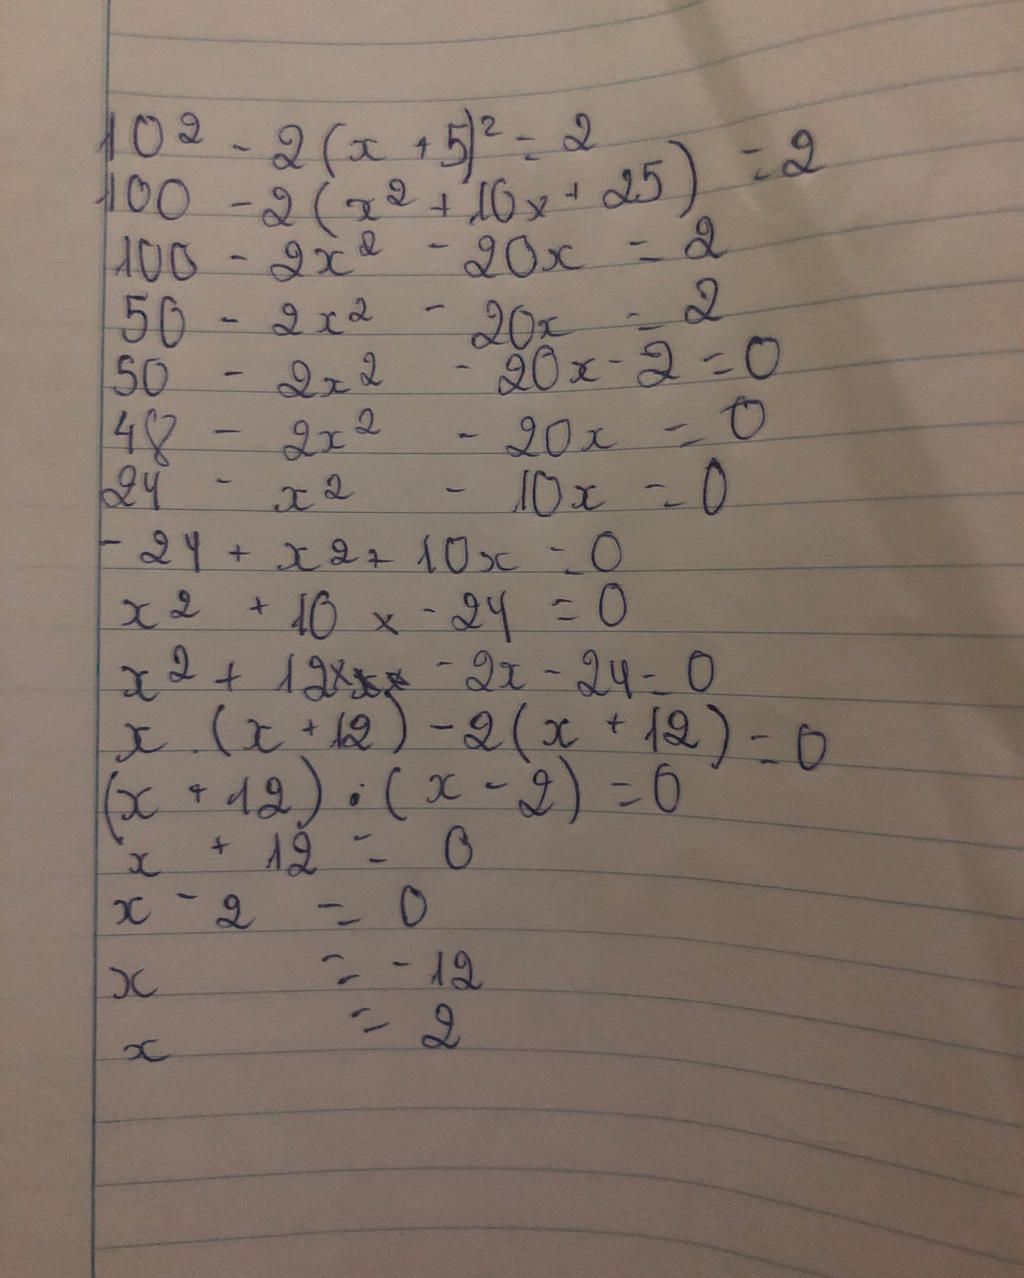 10² - 2(x + 5)² = 2
100 - 2(x² + 10x + 25) = 2
100 - 2x² - 20x = 2
50 - 2x² - 20x = 2
50 - 2x² - 20x - 2 = 0
48 - 2x² - 20x = 0
24 - x² - 10x = 0
- 24 + x² + 10x = 0
x² + 10x - 24 = 0
x² + 12x - 2x - 24 = 0
x . (x + 12) - 2(x + 12) = 0
(x + 12) . (x - 2) = 0
x + 12 = 0
x - 2 = 0
x = - 12
x = 2